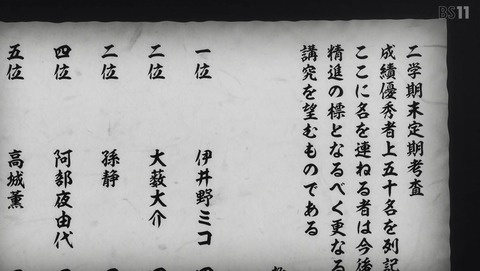 BS11
二学期末定期考査
成績優秀者上五十名を列記
ここに名を連ねる者は今後
精進の標となるべく更なる
講究を望むものである
一位 伊井野ミコ
二位 大薮大介
二位 孫静
四位 阿部夜由代
五位 高城薫